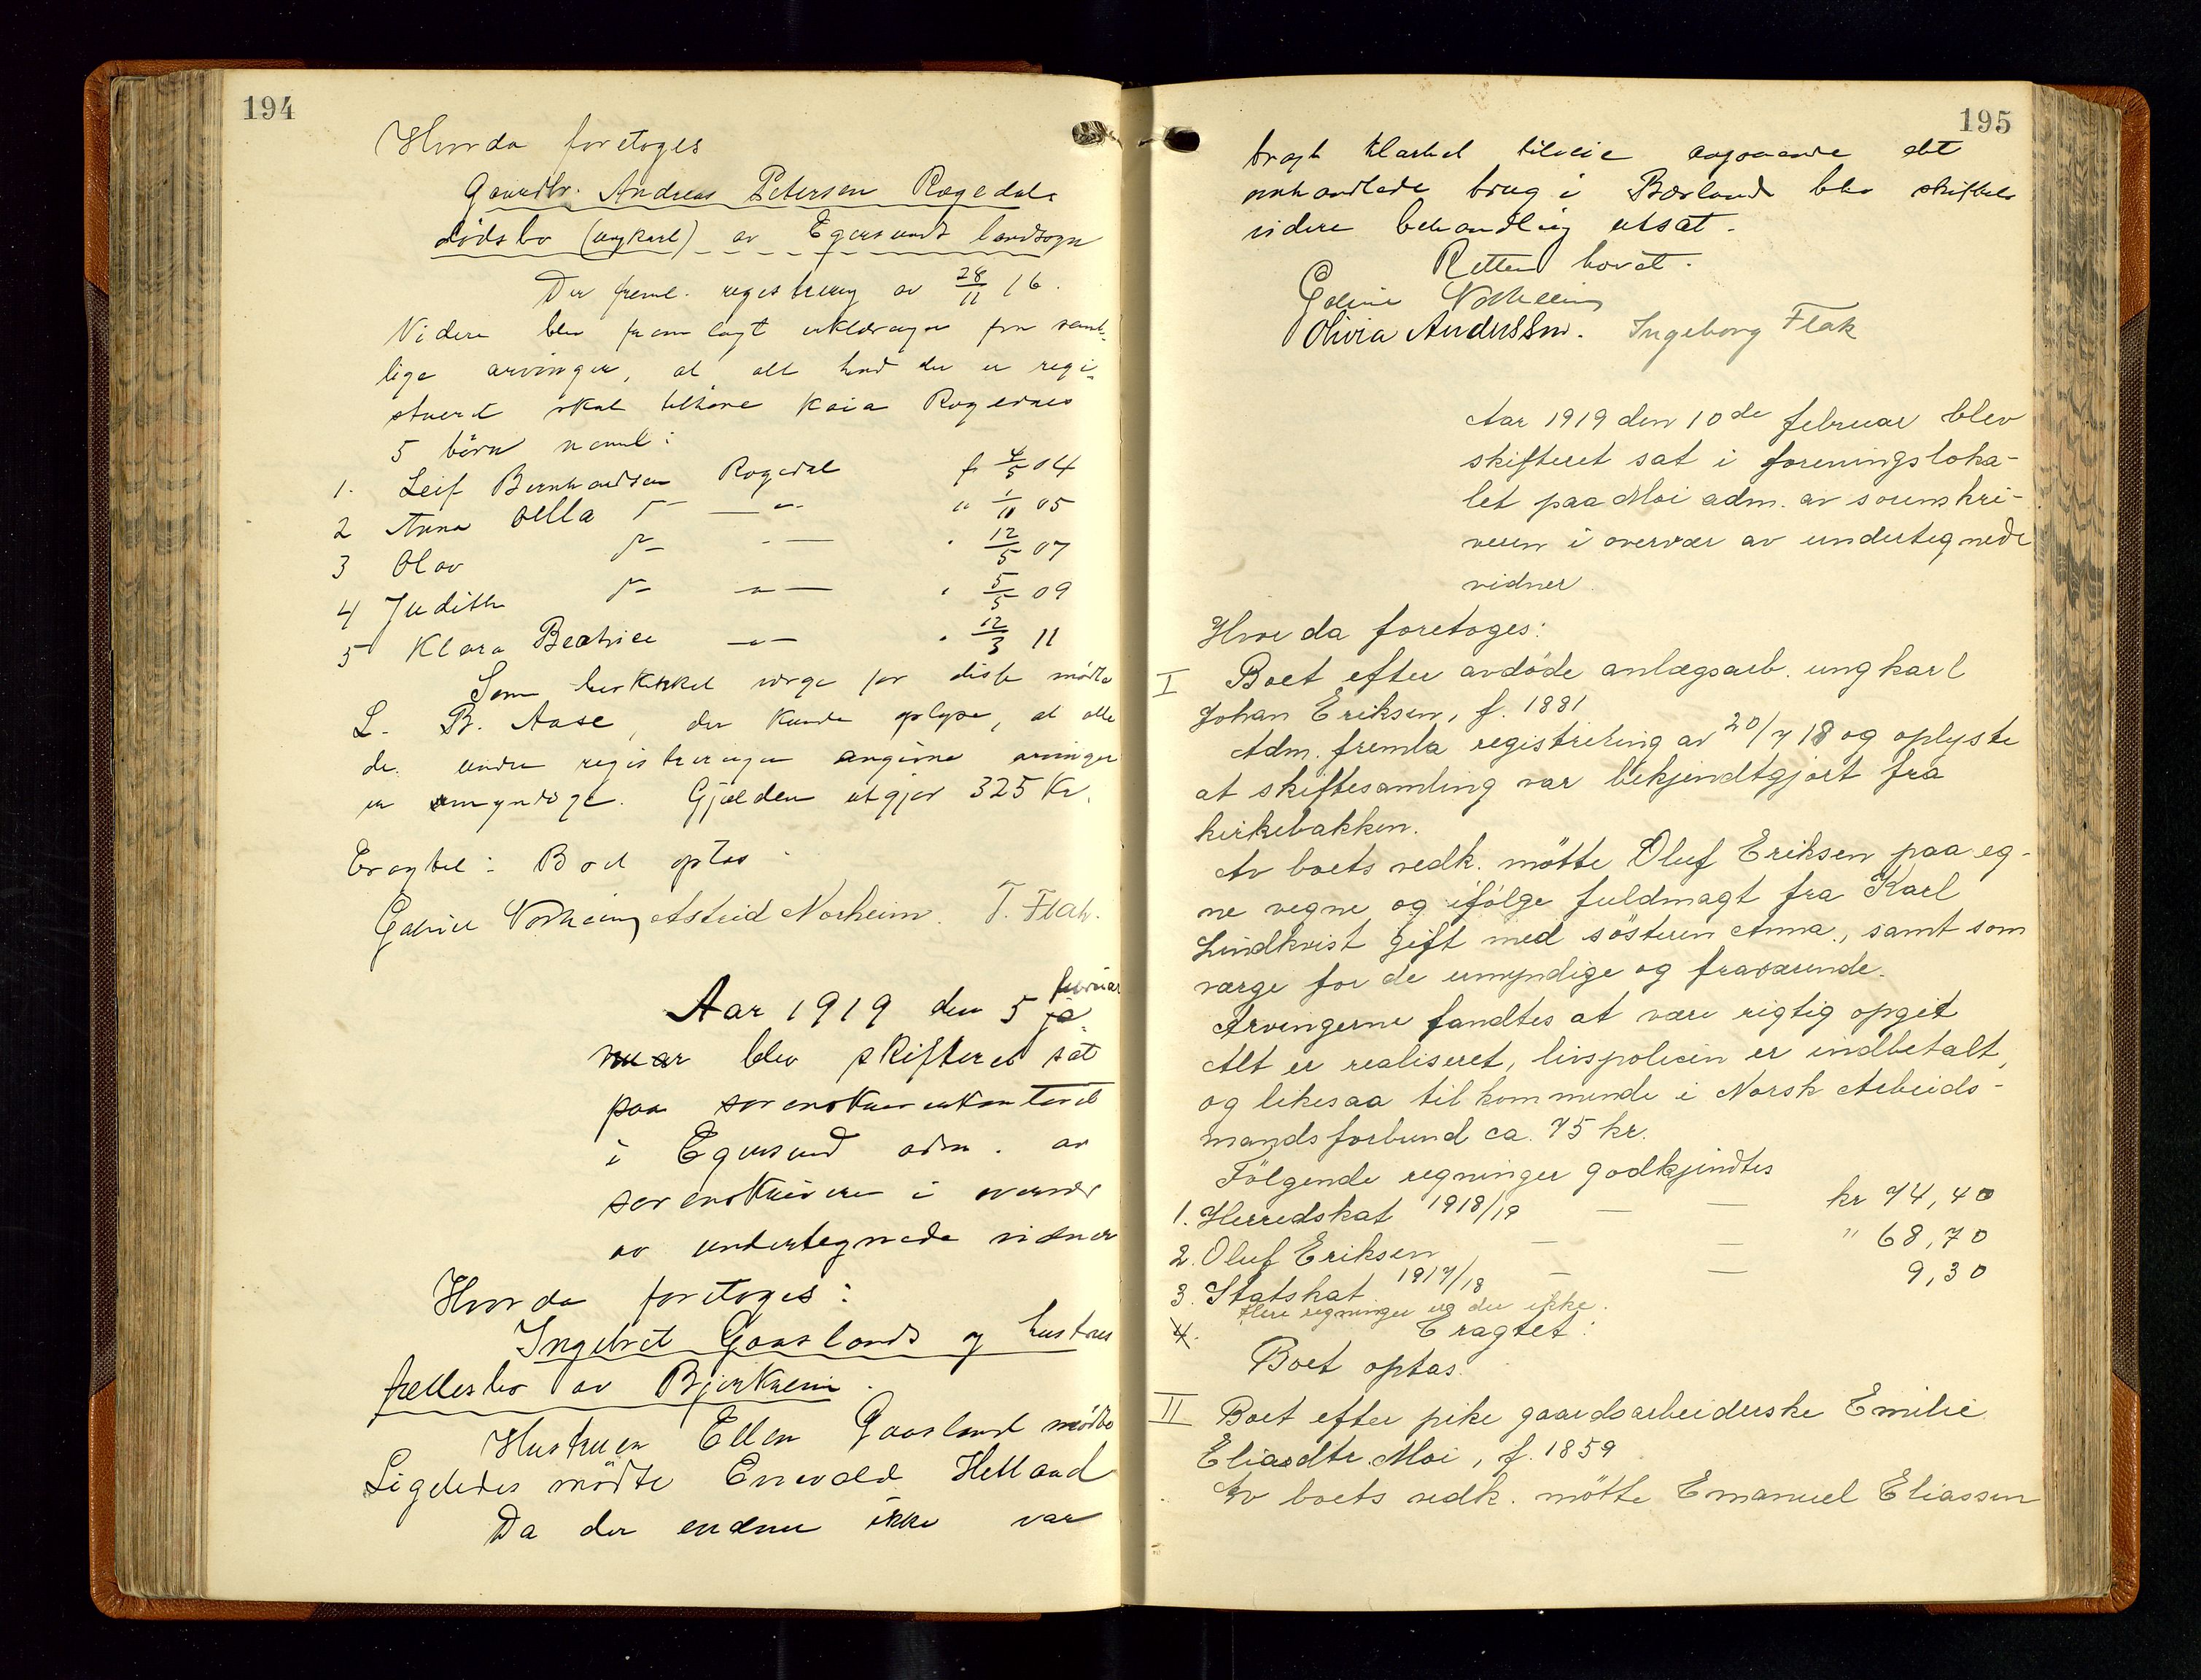 194
Hvorda foretoges
Gaardbr. Andreas Petersen Rogedals
dödsbo (ungkarl) av Egersunds landsogn
Der freml. registrering av 28/11 16.
Videre blev fremlagt erklæringer fra samt-
lige arvinger, at alt hvad der er regi-
streret skal tilhøre Kaia Rogedals
5 börn neml:
1. Leif Bernhardsen Rogedal f 4/5 04
2 Anna Della " 1/11 05
3 Olav " 12/5 07
4 Judith " 5/5 09
5 Klara Beatrice " 12/3 11
Som beskikket verge for disse mødte
L. B. Aase, der kunde oplyse, at alle
de under registreringen angivne arvinger
er umyndige. Gjælden utgjør 325 Kr.
Eragtet: Boet optas
Gabriel Norheim Astrid Norheim. T. Flak.
Aar 1919 den 5 februar ja-
nuar blev skifteret sat
paa sorenskriverkontoret
i Egersund adm. av
sorenskriveren i overvær
av undertegnede vidner
Hvorda foretoges:
Ingebret Gaaslands og hustrus
fællesbo av Bjerkreim.
Hustruen Ellen Gaasland mødte
Ligeledes mödte Enevald Helland
Da der endnu ikke var
195
bragt klarhet tilveie angaaende det
omhandlede brug i blev skiftets
videre behandling utsat.
Retten hævet.
Norheim
Olivia Anderssen. Ingeborg Flak
Aar 1919 den 10de februar blev
skifteret sat i foreningsloka-
let paa Moi adm. av sorenskri-
veren i overvær av undertegnede
vidner.
Hvor da foretoges:
I Boet efter avdöde anlægsarb. ungkarl
Johan Eriksen, f. 1881
Adm. fremla registrering av 20/7 18 og oplyste
at skiftesamling var bekjendtgjort fra
kirkebakken.
Av boets vedk. mötte Oluf Eriksen paa eg-
ne vegne og ifölge fuldmagt fra Karl
Lindkvist gift med sösteren Anna, samt som
værge for de umyndige og fraværende.
Arvingerne fandtes at være rigtig opgit
Alt er realiseret, livspolicen er indbetalt,
og likesaa tilkommende i Norsk Arbeids-
mandsforbund ca. 75 kr.
Fölgende regninger godkjendtes
1. Herredskat 1918/19 — — kr 74,40
2. Oluf Eriksen — — " 68,70
3. Statskat 1917/18 — — 9,30
Flere regninger er der ikke.
4. Eragtet:
Boet optas.
II Boet efter pike gaardsarbeiderske Emilie
Eliasdtr. Moi, f. 1859
Av boets vedk. mötte Emanuel Eliassen